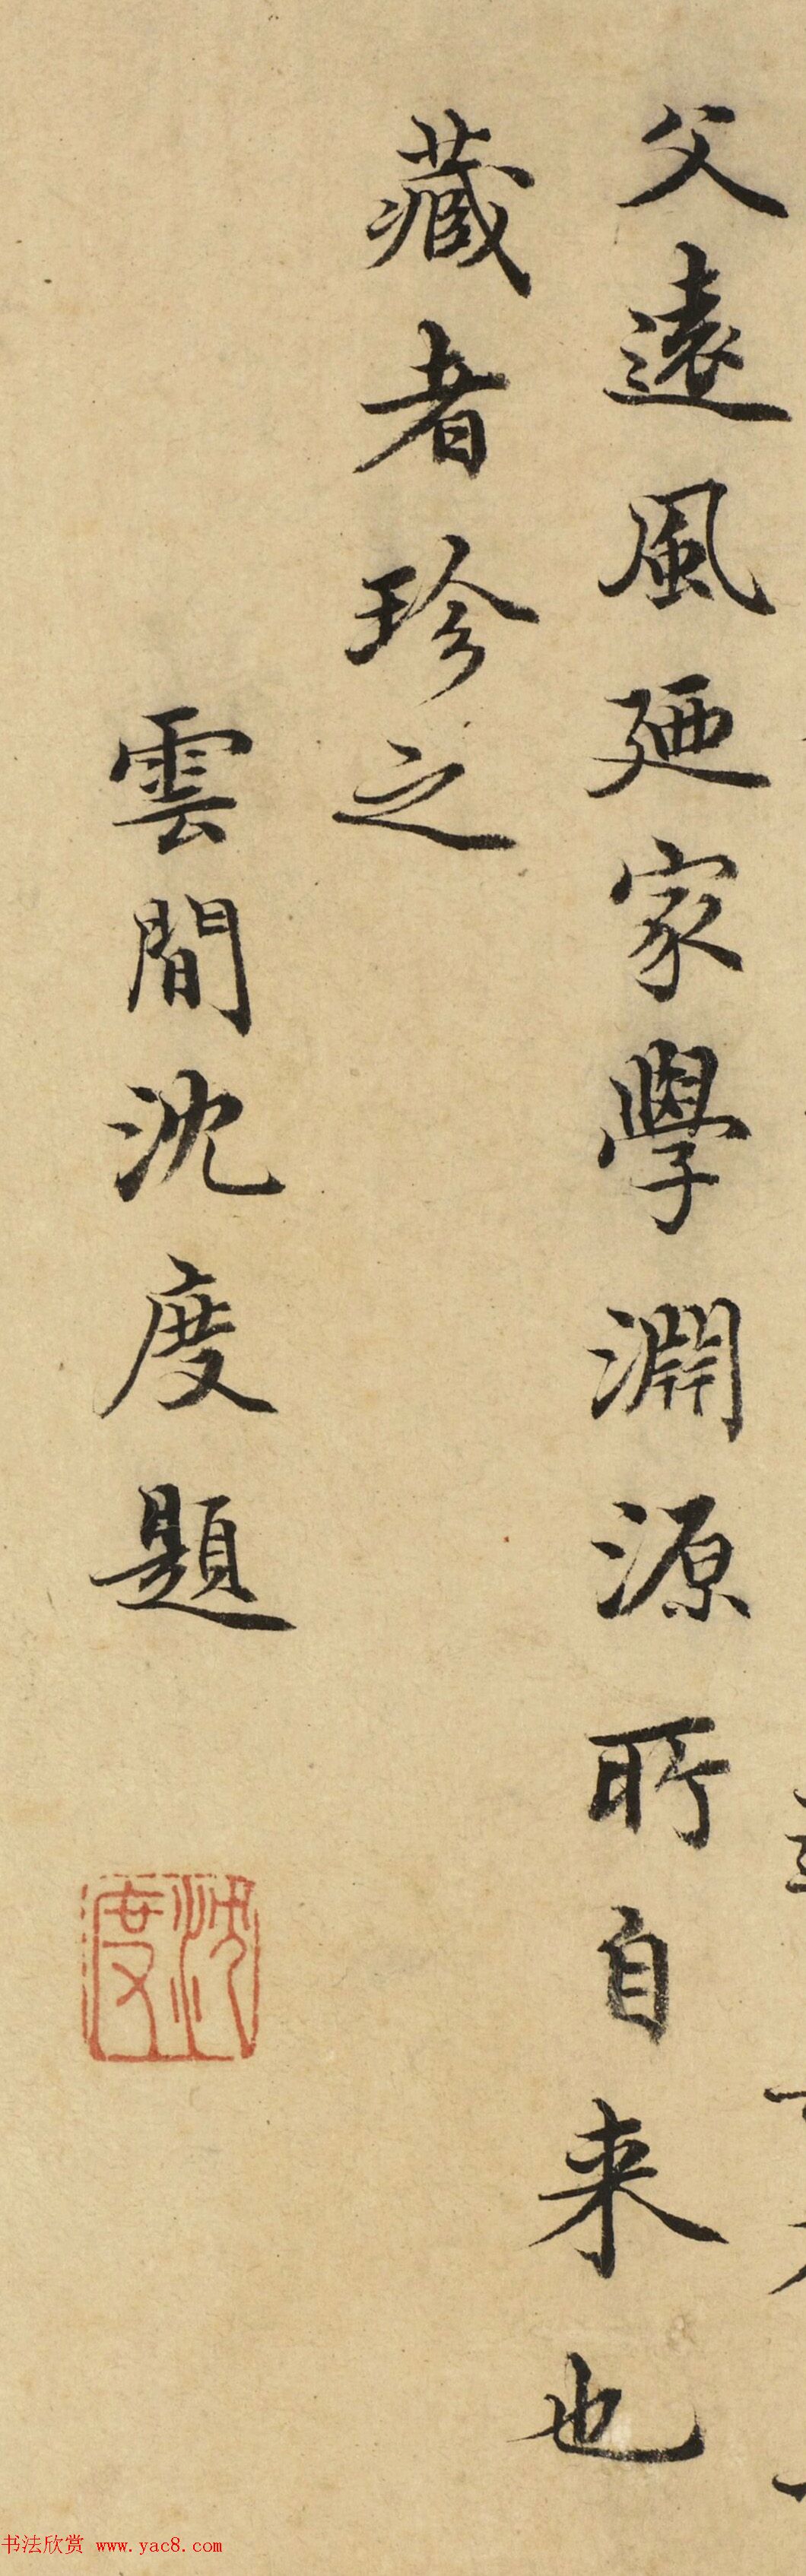 父遠風廼家學淵源所自来也
藏者珍之
雲間沈度題
沈度
书法欣赏 www.yac8.com